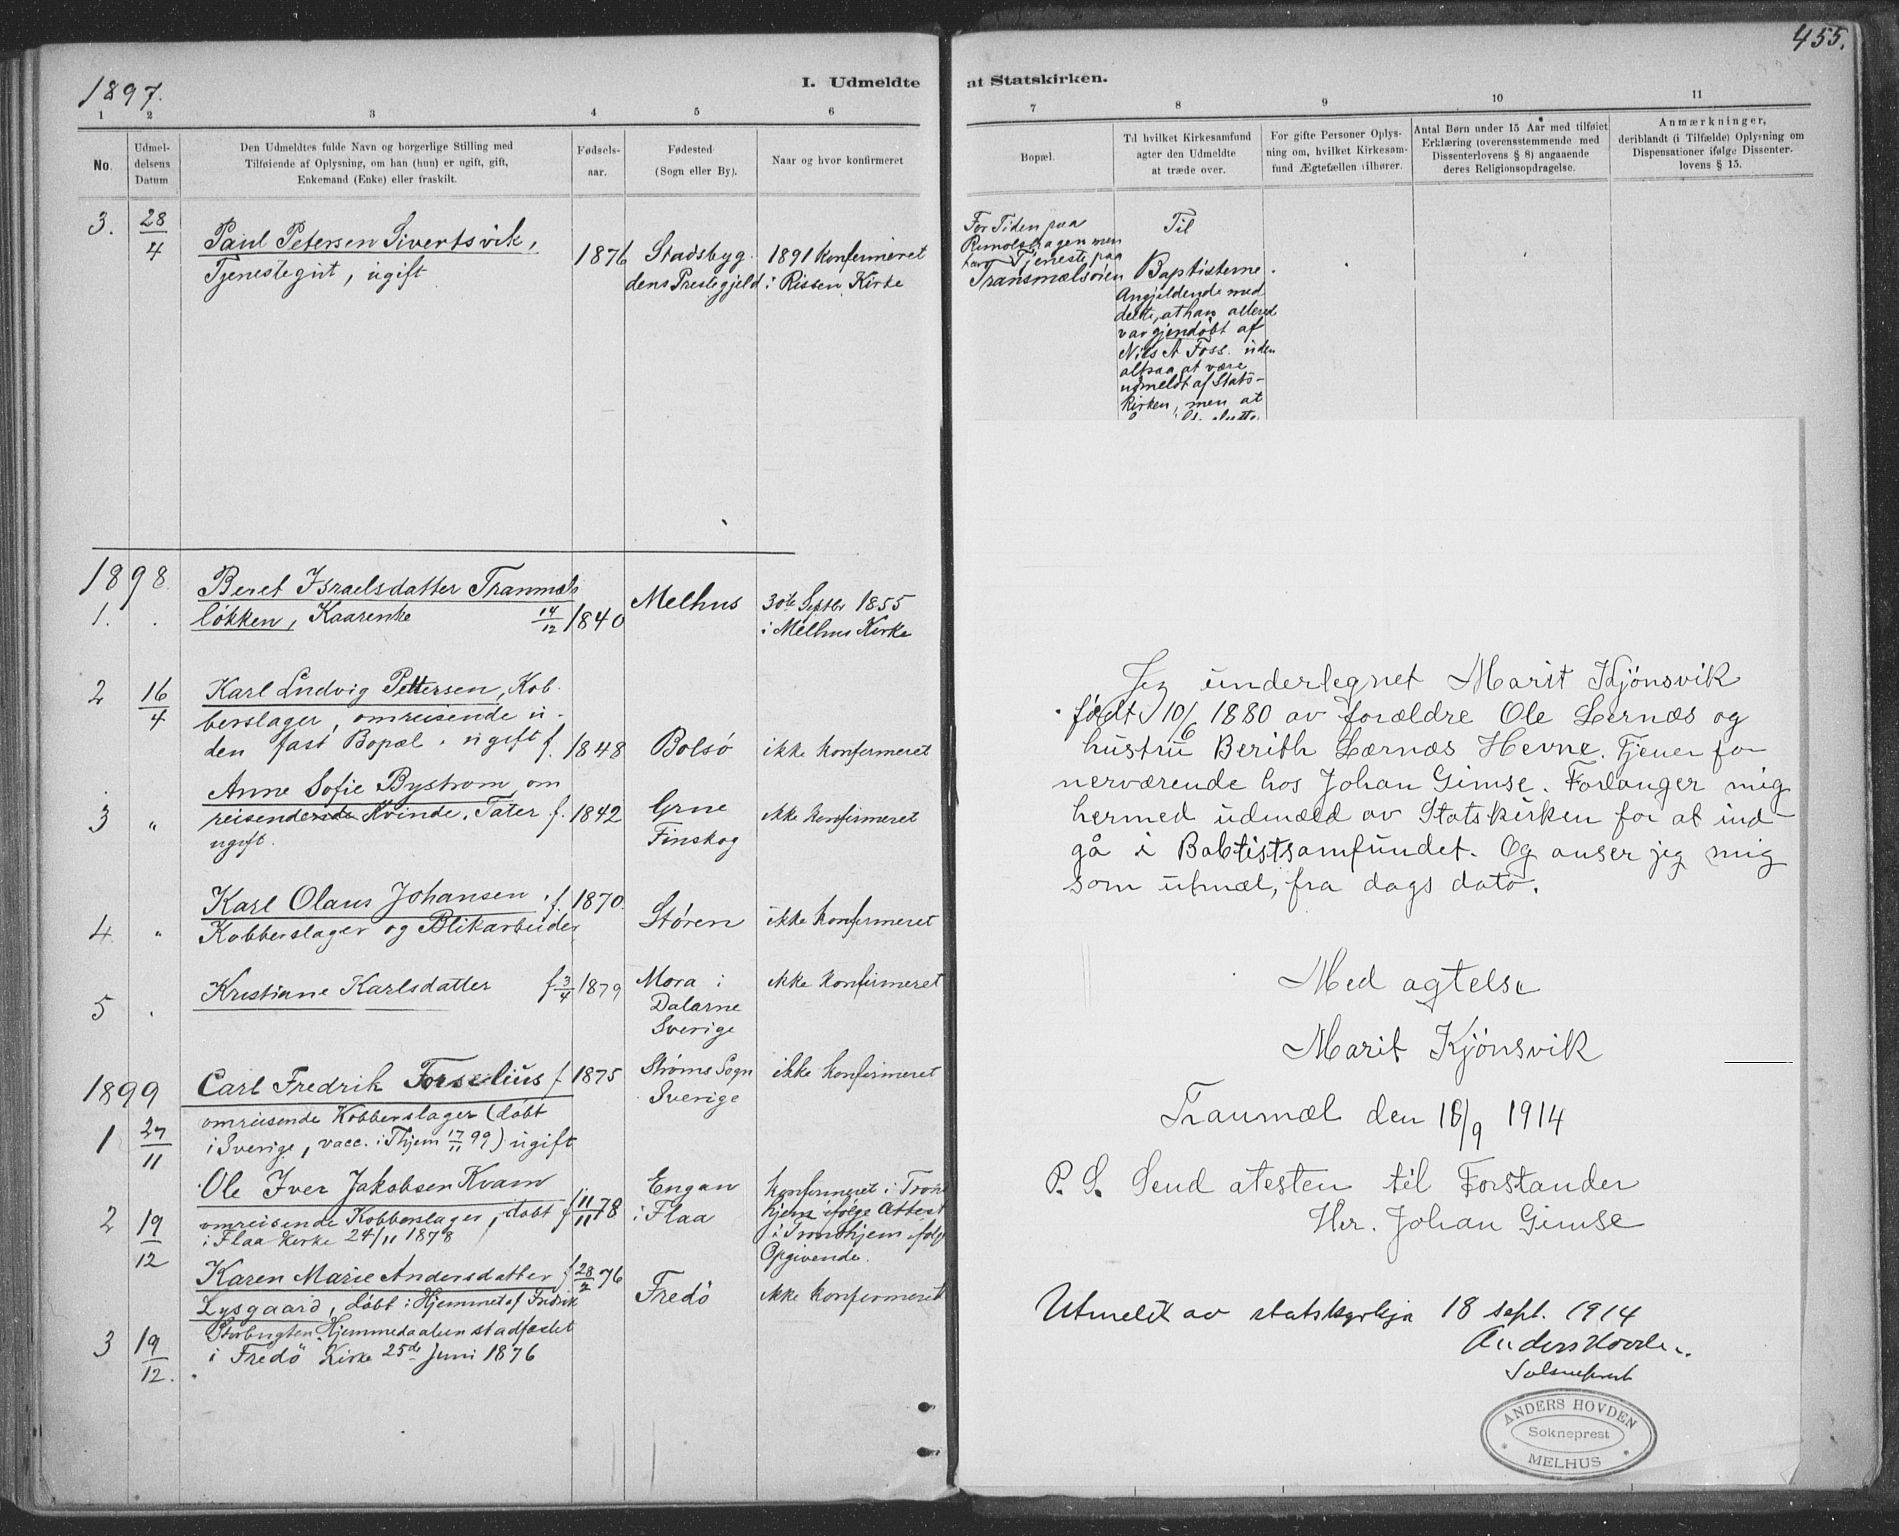 455.
1897.
I. Udmeldte at Statskirken.
1 2 3 4 5 6 7 8 9 10 11
No.
Udmel-
delsens
Datum
Den Udmeldtes fulde Navn og borgerlige Stilling med
Tilføiende af Oplysning, om han (hun) er ugift, gift,
Enkemand (Enke) eller fraskilt.
Fødsels-
aar.
Fødested
(Sogn eller By).
Naar og hvor konfirmeret
Bopæl.
Til hvilket Kirkesamfund
agter den Udmeldte
at træde over.
For gifte Personer Oplys-
ning om, hvilket Kirkesam-
fund Ægtefællen tilhører.
Antal Børn under 15 Aar med tilføiet
Erklæring (overensstemmende med
Dissenterlovens § 8) angaaende
deres Religionsopdragelse.
Anmærkninger,
deriblandt (i Tilfælde) Oplysning om
Dispensationer ifølge Dissenter-
lovens § 15.
3. 28/4
Paul Petersen Sivertsvik,
Tjenestegut, ugift
1876
Stadsbyg
dens Prestegjeld
1891 konfirmeret
i Rissen Kirke
For Tiden paa
men
Tjeneste paa
Tranmælsøien
Til
Baptisterne.
Angjeldende med
delte, at han allered
var gjendøbt af
Nils A Foss. uden
altsaa at være
udmeldt af Stats-
kirken, men at
1898
1. .
Beret Israelsdatter Tranmæls
løkken, Kaarenke 14/12 1840
Melhus
30te Septbr 1855
i Melhus Kirke
2 16/4
Karl Ludvig Pettersen, Kob
berslager, omreisende u
den fast Bopæl. ugift f. 1848
Bolsø
ikke konfirmeret
3 "
Anne Sofie Bystrøm, om
reisendende Kvinde, Tater f. 1842
ugift.
Grue
Finskog
ikke konfirmeret
4. "
Karl Olaus Johansen, f. 1870.
Kobberslager og Blikarbeider
Støren
ikke konfirmeret
5 .
Kristiane Karlsdatter f 3/4 1879
Mora i
Dalarne
Sverige
ikke konfirmeret
1899
1 27/11
Carl Fredrik Forselius f 1875
omreisende Kobberslager (døbt
i Sverige, vacc. i Thjem 17/11 99) ugift
Strøms Sogn
Sverige
ikke konfirmeret
2 19/12
Ole Iver Jakobsen Kvam
omreisende Kobberslager, døbt f 11/11 78
i Flaa Kirke 24/11 1878
Engan
i Flaa
konfirmeret i Tron
hjem ifølge Attest
i Trondhjem ifølg
Opgivende.
3 19/12.
Karen Marie Andersdatter f 28/2 76
Lysgaard, døbt i Hjemmet af Fredrik
Hjemmedaaben stadfæstet
i Fredö Kirke 25de Juni 1876
Fredö
ikke konfirmeret
Jeg underlegnet Marit Kjönsvik
född 10/6 1880 av forældre Ole Lernæs og
hustru Berith Lærnæs Hevne. Tjener for
nerværende hos Johan Gimse. Forlanger mig
hermed udmæld av Statskirken for at ind-
gå i Babtistsamfundet. Og anser jeg mig
som utmæl, fra dags dato.
Med agtelse
Marit Kjönsvik
Tranmæl den 18/9 1914
P. S. Send atesten til Forstander
Her. Johan Gimse
Utmeldt av statskyrkja 18 sept. 1914
Anders Hovden.
Sokneprest
ANDERS HOVDEN
Sokneprest
MELHUS